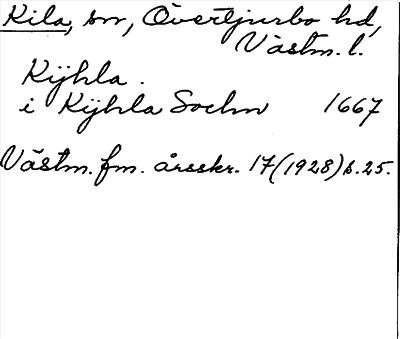 Kila, sn, Övertjurbo hd,
Västm. l.
Kÿhla.
i Kÿhla Sochn 1667
Västm. fm. årsskr. 17 (1928) s. 25.